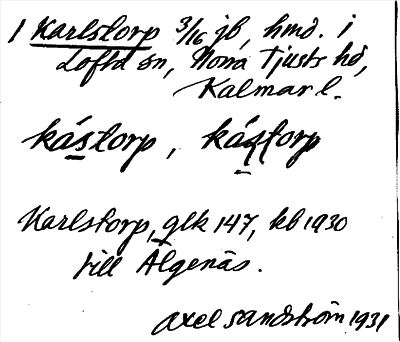 1 Karlstorp 3/16 jb, hmd. i
Lofta sn, Norra Tjusts hd,
Kalmar l.
kástorp, káştorp
Karlstorp, glk 147, kb 1930
till Älgenäs.
Axel Sandström 1931